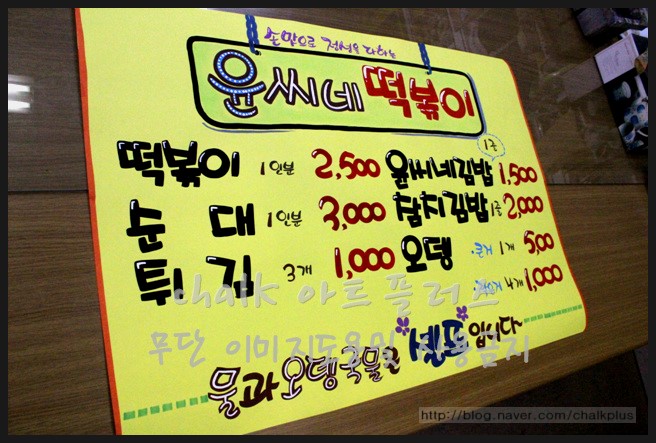 손맛으로 정성을 다하는
윤씨네 떡볶이
1줄
떡볶이 1인분 2,500 윤씨네김밥 1,500
순대 1인분 3,000 참치김밥 1줄 2,000
튀김 3개 1,000 오뎅 ·큰거 1개 500
·작은거 4개 1,000
chalk 아트플러스
무단 이미지도용및 사용금지
물과 오뎅국물은 셀프입니다~
http://blog.naver.com/chalkplus